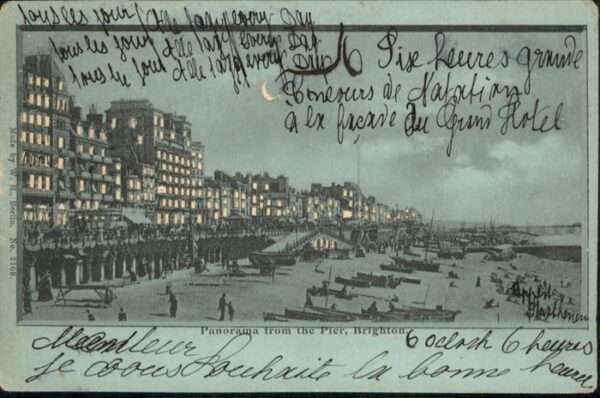 tous les jour Alle Day every Day
tous les jour Alle Day every Day
tous les jour Alle Day every Day
6 Six heures grande
Concours de Natation
à la façade du Grand Hotel
Made by W. H., Berlin. No. 1168.
Panorama from the Pier, Brighton.
6 oclock 6 heures
je vous souhaite la bonne heure